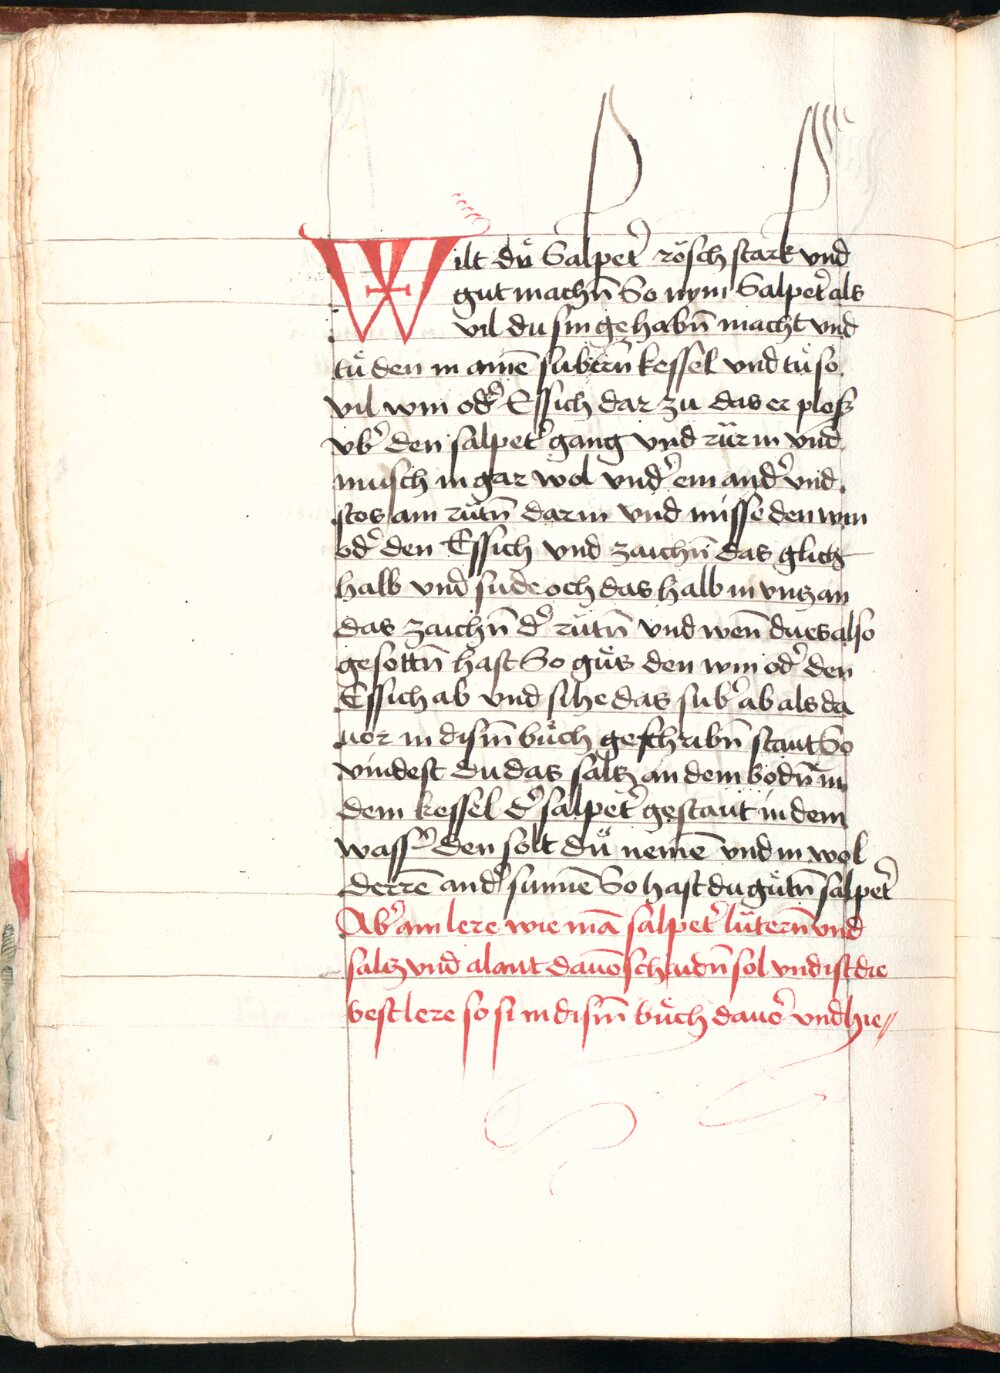 Wilt dů Salpet̕ rösch stark vnd
gut machn̄ So nym Salpet̕ als
vil du sin gehabn̄ macht vnd
tů den in ainē subern̄ kessel vnd tů so
vil win od̕ Essich dar zu das er plos
vb̕ den salpet̕ gang vnd rür in vnd
misch in gar wol vnd̕ ein and̕ vnd
stos ain růtn̄ darin vnd misse den win
od̕ den Essich vnd zaichn̄ das glich
halb vnd süde och das halb in vntz an
das zaichn̄ d̕ růtn̄ vnd wen̄ du es also
gesottn̄ hast So güs den win od̕ den
Essich ab vnd sihe das sub̕ ab als da
uor in disn̄ bůch geschribn̄ staut So
vindest du das saltz an dem bodn̄ in
dem kessel d̕ salpet̕ gestaut in dem
wass̕ den solt dů nemē vnd in wol
derrē an d̕ sunnē So hast du gůtn̄ salpet̕
Ab̕ ain lere wie mā salpet̕ lütern̄ vnd
saltz vnd alant dauō schaidn̄ sol vnd ist die
best lere so si in disn̄ bůch dauō vnd hie //